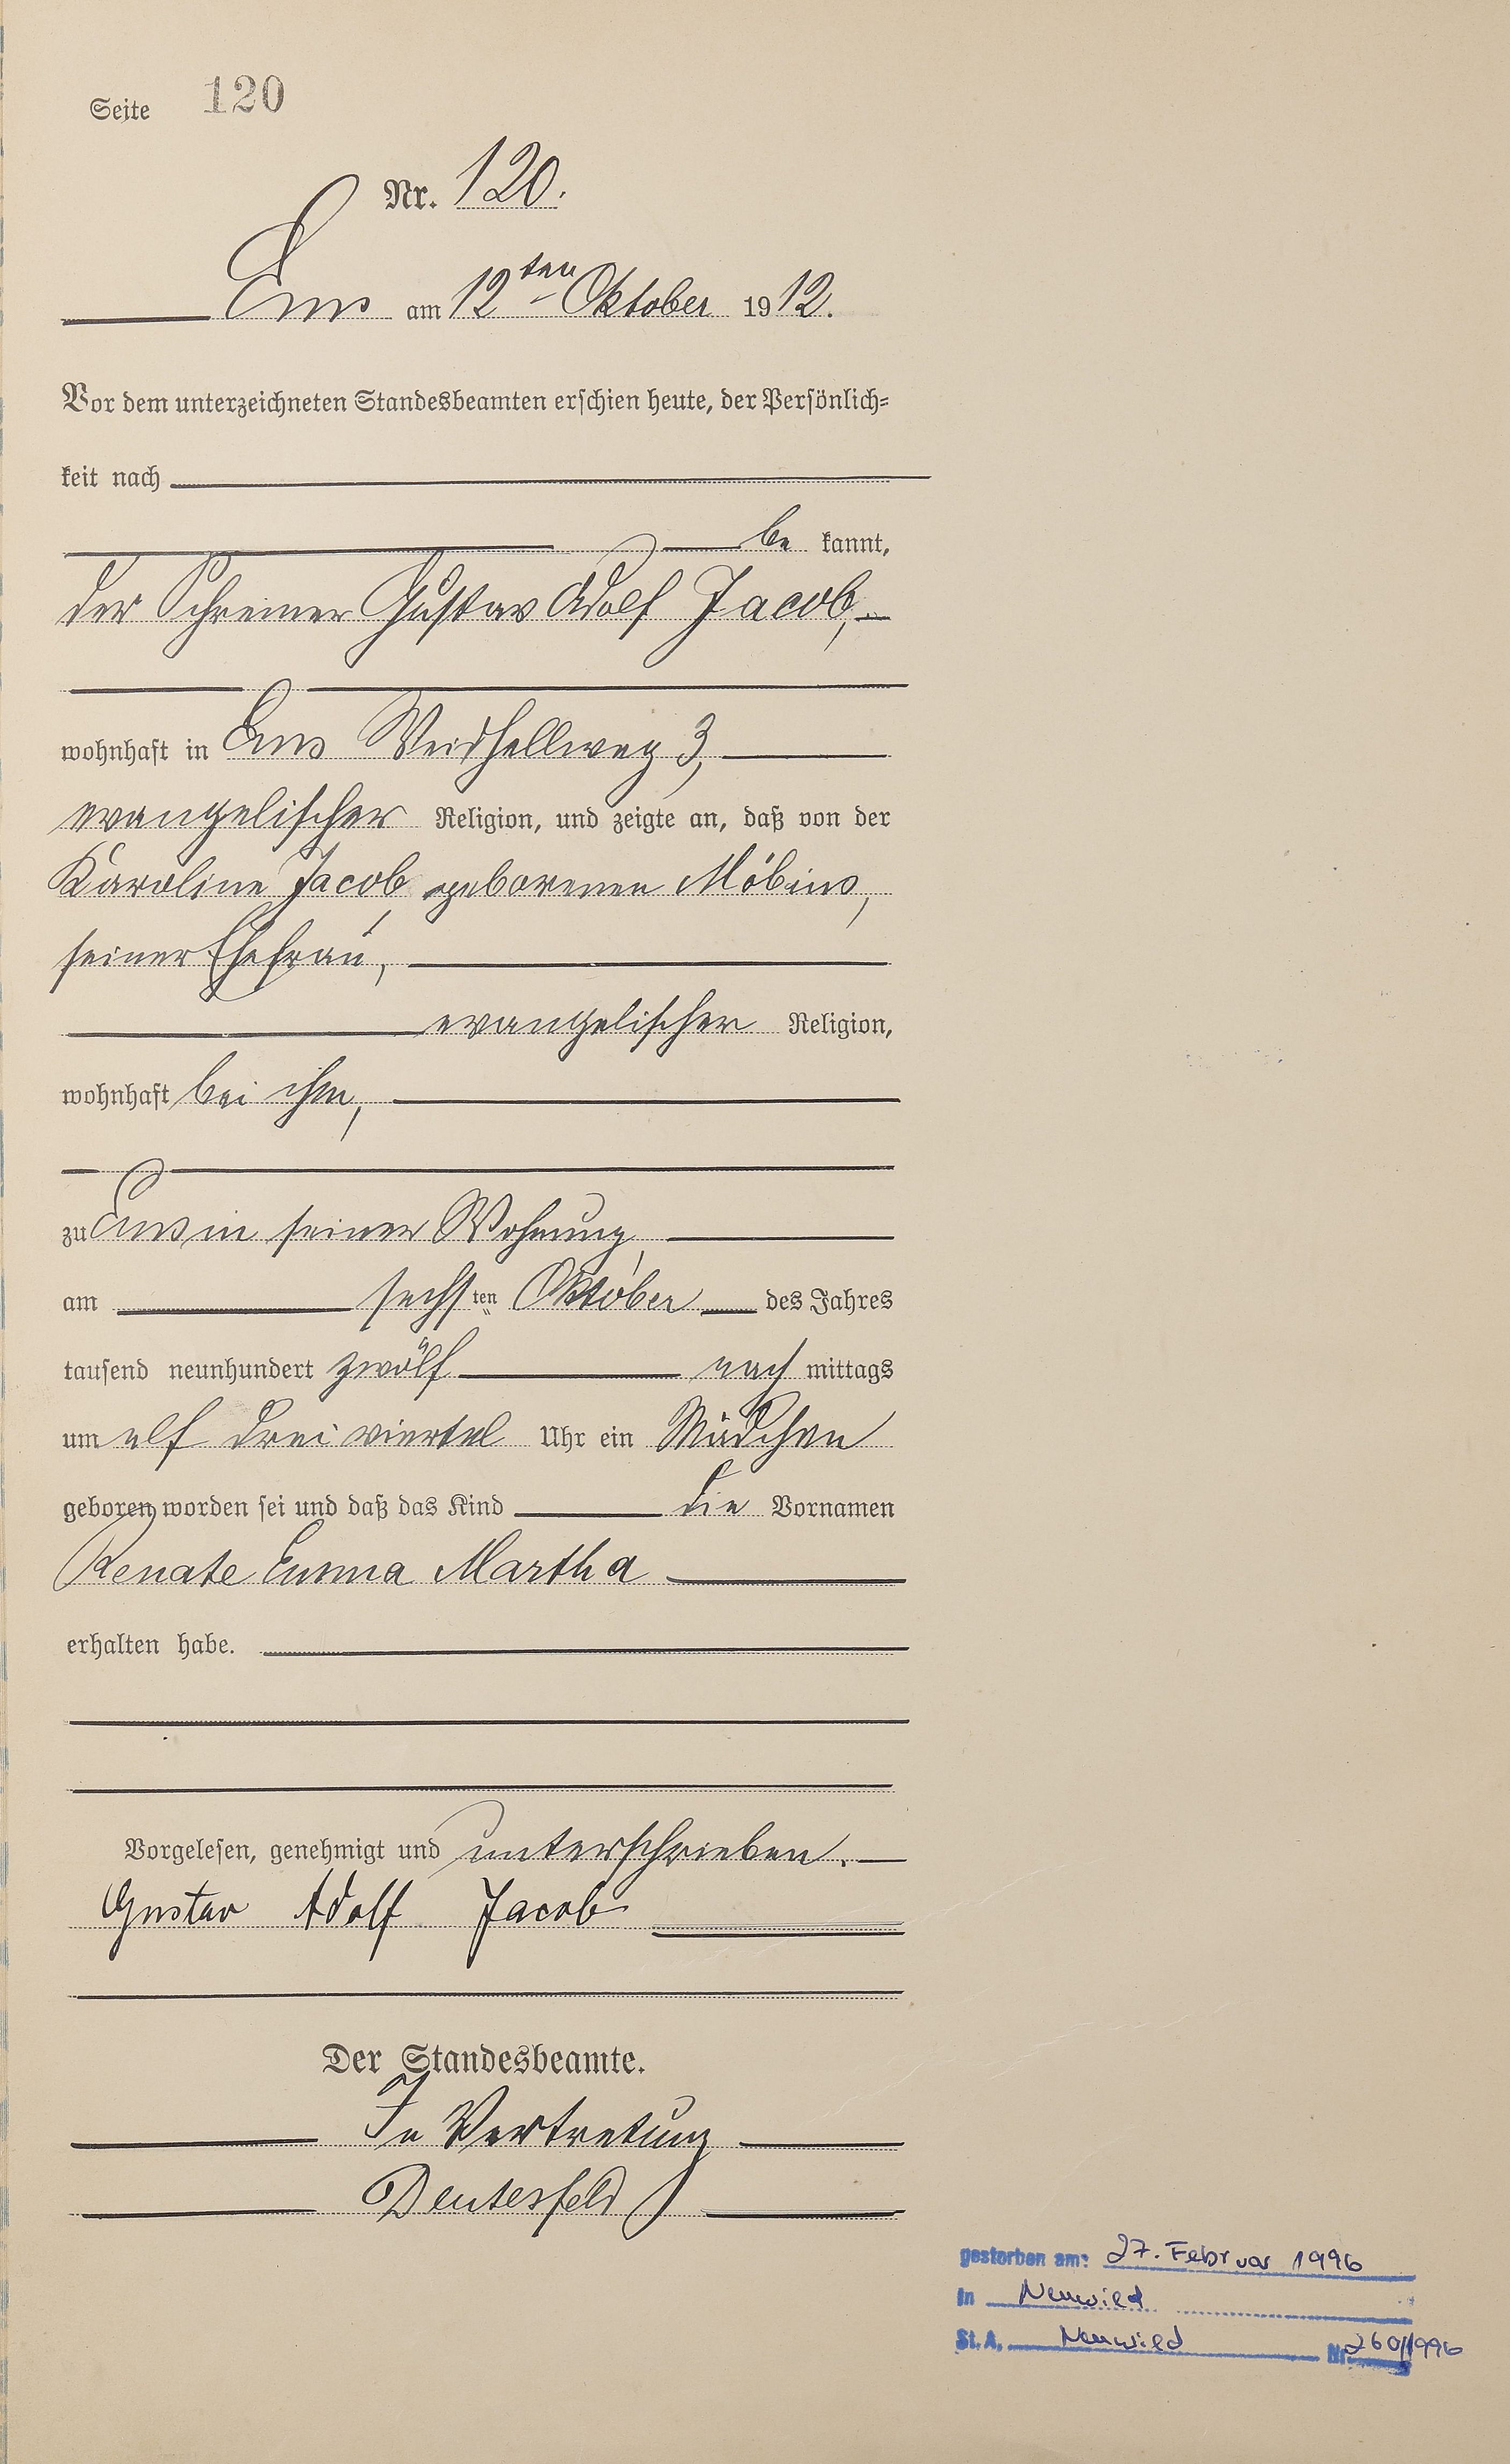 Seite 120
Nr. 120.
Ems am 12ten Oktober 1912.
Vor dem unterzeichneten Standesbeamten erschien heute, der Persönlich=
keit nach
be kannt,
der Schreiner Gustav Adolf Jacob,
wohnhaft in Ems Weidhellweg 3,
evangelischer Religion, und zeigte an, daß von der
Karoline Jacob, geborenen Möbius,
seiner Ehefrau,
evangelischer Religion,
wohnhaft bei ihm,
zu Ems in seiner Wohnung,
am sechsten Oktober des Jahres
tausend neunhundert zwölf nach mittags
um elf dreiviertel Uhr ein Mädchen
geboren worden sei und daß das Kind die Vornamen
Renate Emma Martha
erhalten habe.
Vorgelesen, genehmigt und unterschrieben.
Gustav Adolf Jacob
Der Standesbeamte.
In Vertretung
gestorben am: 27. Februar 1996
in Neuwied
St. A. Neuwied Nr. 260/1996